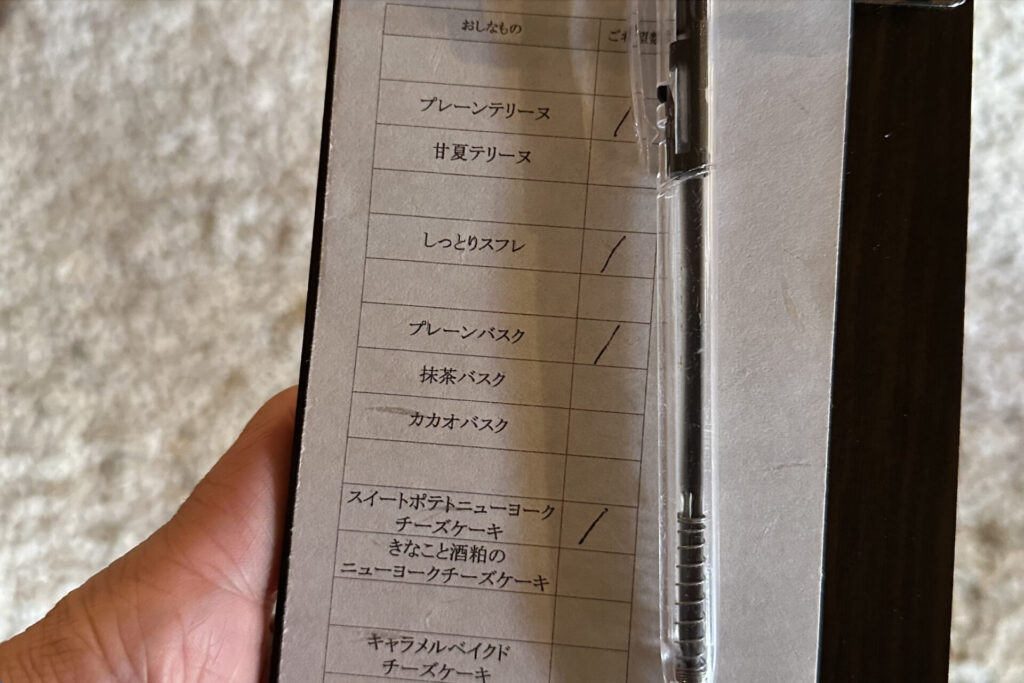 おしなもの ご希望数
プレーンテリーヌ /
甘夏テリーヌ
しっとりスフレ /
プレーンバスク /
抹茶バスク
カカオバスク
スイートポテトニューヨーク
チーズケーキ /
きなこと酒粕の
ニューヨークチーズケーキ
キャラメルベイクド
チーズケーキ